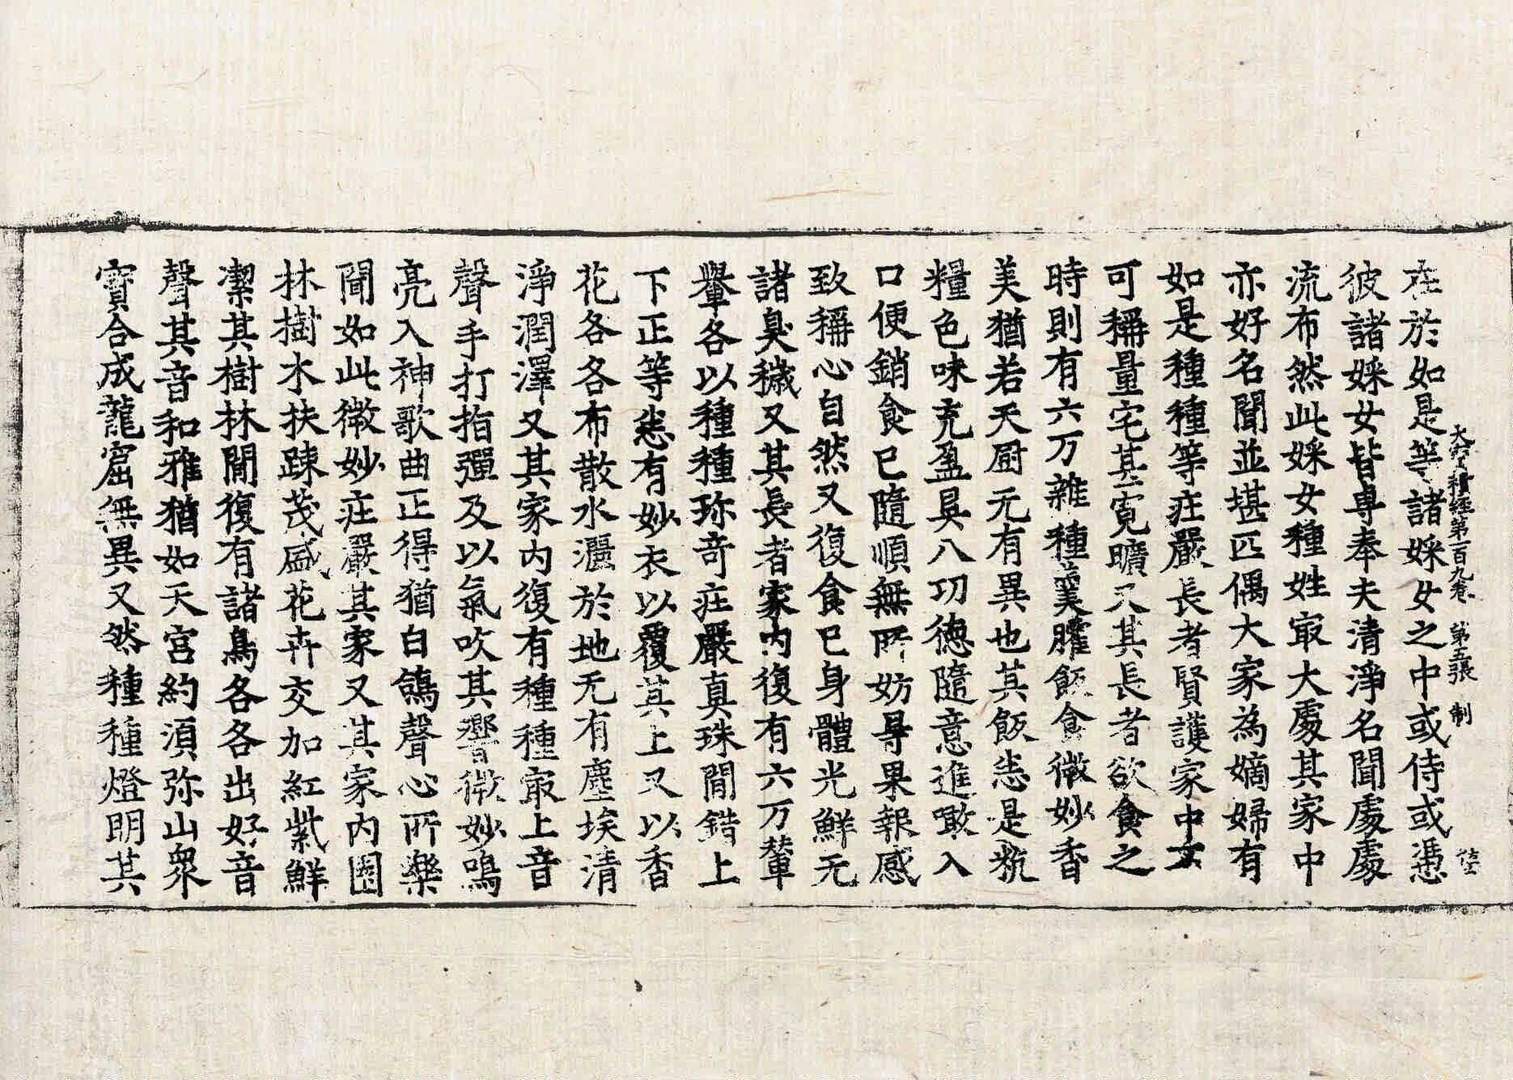 大寶積經第一百九卷 第五張 制
在於如是等諸婇女之中或侍或憑
彼諸婇女皆專奉夫清淨名聞處處
流布然此婇女種姓㝡大處其家中
亦好名聞並堪匹偶大家為嫡婦有
如是種種等庄嚴長者賢護家中文
可稱量宅其寬曠又其長者欲食之
時則有六万雜種羙臛飯食微妙香
美猶若天厨无有異也其飯悉是粇
糧色味充盈具八功德隨意進噉入
口便銷食已隨順無所妨㝵果報感
致稱心自然又復食已身體光鮮无
諸臭穢又其長者家内復有六万輦
轝各以種種珎竒庄嚴真珠間錯上
下正等悉有妙衣以覆其上又以香
花各各布散水灑於地无有塵埃清
淨潤澤又其家内復有種種㝡上音
聲手打指彈及以氣吹其響微妙鳴
亮入神歌曲正得猶白鴿聲心所樂
聞如此微妙庄嚴其家又其家内園
林樹木扶踈茂盛花卉交加紅紫鮮
潔其樹林間復有諸鳥各各出好音
聲其音和雅猶如天宫約湏弥山衆
寳合成龍窟無異又然種種燈明其